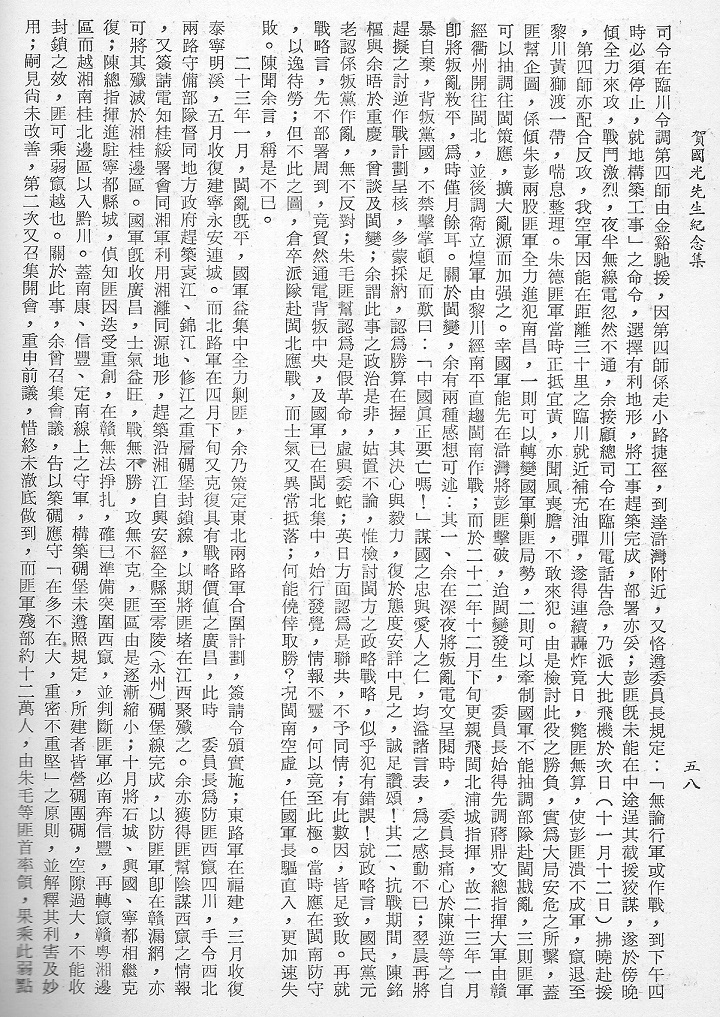 賀國光先生紀念集
五八
司令在臨川令調第四師由金谿馳援，因第四師係走小路捷徑，到達滸灣附近，又恪遵委員長規定：「無論行軍或作戰，到下午四
時必須停止，就地構築工事」之命令，選擇有利地形，將工事趕築完成，部署亦妥；彭匪旣未能在中途逞其截援狡謀，遂於傍晚
傾全力來攻，戰鬥激烈，夜半無線電忽然不通，余接顧總司令在臨川電話告急，乃派大批飛機於次日（十一月十二日）拂曉赴援
，第四師亦配合反攻，我空軍因能在距離三十里之臨川就近補充油彈，遂得連續轟炸竟日，斃匪無算，使彭匪潰不成軍，竄退至
黎川黃獅渡一帶，喘息整理。朱德匪軍當時正抵宜黃，亦聞風喪膽，不敢來犯。由是檢討此役之勝負，實爲大局安危之所繫，蓋
匪幫企圖，係傾朱彭兩股匪軍全力進犯南昌，一則可以轉變國軍剿匪局勢，二則可以牽制國軍不能抽調部隊赴閩戡亂，三則匪軍
可以抽調往閩策應，擴大亂源而加强之。幸國軍能先在滸灣將彭匪擊破，迨閩變發生，　委員長始得先調蔣鼎文總指揮大軍由贛
經衢州開往閩北，並後調衛立煌軍由黎川經南平直趨閩南作戰；而於二十二年十二月下旬更親飛閩北浦城指揮，故二十三年一月
卽將叛亂敉平，爲時僅月餘耳。關於閩變，余有兩種感想可述：其一、余在深夜將叛亂電文呈閱時，　委員長痛心於陳逆等之自
暴自棄，背叛黨國，不禁擊掌頓足而歎曰：「中國眞正要亡嗎！」謀國之忠與愛人之仁，均溢諸言表，爲之感動不已；翌晨再將
趕擬之討逆作戰計劃呈核，多蒙採納，認爲勝算在握，其決心與毅力，復於態度安詳中見之，誠足讚頌！其二、抗戰期間，陳銘
樞與余晤於重慶，曾談及閩變；余謂此事之政治是非，姑置不論，惟檢討閩方之政略戰略，似乎犯有錯誤！就政略言，國民黨元
老認係叛黨作亂，無不反對；朱毛匪幫認爲是假革命，虛與委蛇；英日方面認爲是聯共，不予同情；有此數因，皆足致敗。再就
戰略言，先不部署周到，竟貿然通電背叛中央，及國軍已在閩北集中，始行發覺，情報不靈，何以竟至此極。當時應在閩南防守
，以逸待勞；但不此之圖，倉卒派隊赴閩北應戰，而士氣又異常抵落；何能僥倖取勝？况閩南空虛，任國軍長驅直入，更加速失
敗。陳聞余言，稱是不已。
二十三年一月，閩亂旣平，國軍益集中全力剿匪，余乃策定東北兩路軍合圍計劃，簽請令頒實施；東路軍在福建，三月收復
泰寧明溪，五月收復建寧永安連城。而北路軍在四月下旬又克復具有戰略價值之廣昌，此時　委員長爲防匪西竄四川，手令西北
兩路守備部隊督同地方政府趕築袁江、錦江、修江之重層碉堡封鎖線，以期將匪堵在江西聚殲之。余亦獲得匪幫陰謀西竄之情報
，又簽請電知桂綏署會同湘軍利用湘灕同源地形，趕築沿湘江自興安經全縣至零陵（永州）碉堡線完成，以防匪軍卽在贛漏網，亦
可將其殲滅於湘桂邊區。國軍旣收廣昌，士氣益旺，戰無不勝，攻無不克，匪區由是逐漸縮小；十月將石城、興國、寧都相繼克
復；陳總指揮進駐寧都縣城，偵知匪因迭受重創，在贛無法掙扎，確已準備突圍西竄，並判斷匪軍必南奔信豐，再轉竄贛粵湘邊
區而越湘南桂北邊區以入黔川。蓋南康、信豐、定南線上之守軍，構築碉堡未遵照規定，所建者皆營碉團碉，空隙過大，不能收
封鎖之效，匪可乘弱竄越也。關於此事，余曾召集會議，告以築碉應守「在多不在大，重密不重堅」之原則，並解釋其利害及妙
用；嗣見尙未改善，第二次又召集開會，重申前議，惜終未澈底做到，而匪軍殘部約十二萬人，由朱毛等匪首率領，果乘此弱點